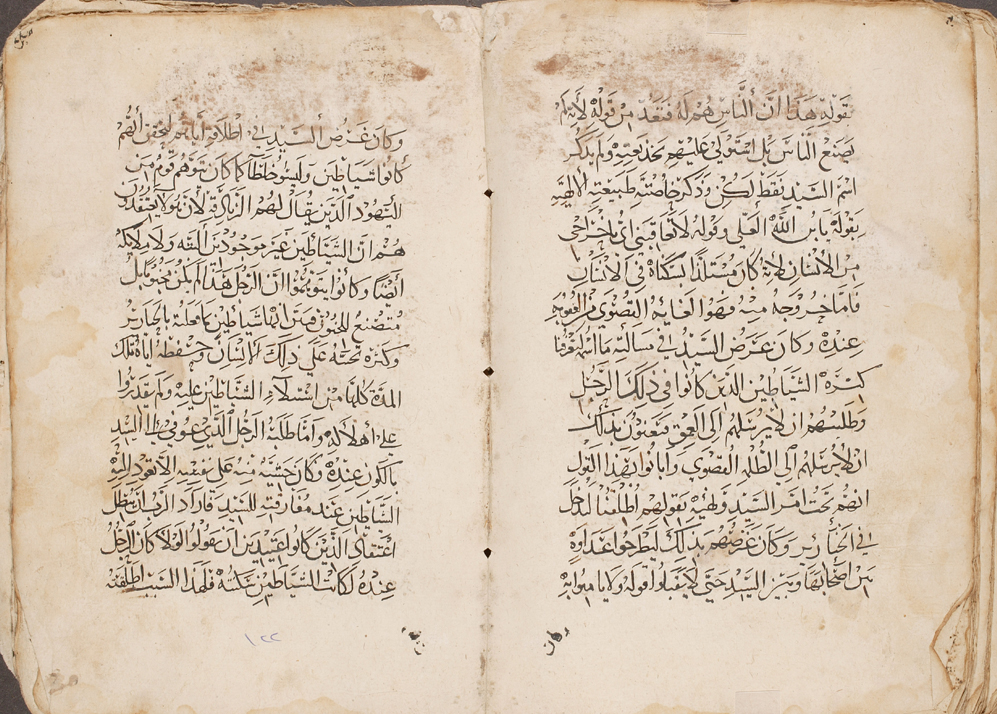 بقوله هذا ان الناس هم له فتعد من قوله لانه لم
يصنع الناس بل استولى عليهم بخديعته ولم يذكر
اسم السيد فقط لكن وذكر خاصته طبيعته الالهيه
بقوله يابن الله العلي وقوله لا تعاقبني اي باخراجي
من الانسان لانه كان مستلذا بسكناه في الانسان
فاما خروجه منه فهوا الغايه القصوى من العقوبه
عنده وكان غرض السيد في مسالته ما اسمك ليعرفنا
كثرة الشياطين الذين كانوا في ذلك الرجل
وطلبتهم ان لا يرسلهم الى العمق فيعنون بذلك
ان لا يرسلهم الى الظلمه القصوى وابانوا بهذا القول
انهم تحت امر السيد ونهيه بقولهم اطلقنا لندخل
في الخنازير وكان غرضهم بذلك ليطرحوا عداوه
بين اصحابها وبين السيد حتى لا يقبلوا قوله ولا يامنوا به
وكان
وكان غرض السيد في اطلاقه اياهم ليحقق انهم
كانوا شياطين وليسو خلطا كما كان يتوهم قوم من
اليهود الذين يقال لهم الزنادقه لان هولا يعتقدون
هم ان الشياطين غير موجودين البته ولا ملايكه
ايضا وكانوا يتوهموا ان الرجل هذا لم يكن مجنون بل
متصنع للجنون فبين انها شياطين بما فعلته بالخنازير
وكثرة تحننه على ذلك الانسان وحفظه اياه تلك
المدة كلها من استلاء الشياطين عليه ولم يقدروا
على اهلاكه واما طلبة الرجل الذي عوفي الى السيد
بالكون عنده وكان خشيه منه على نفسه الا تعود اليه
الشياطين عند مفارقته للسيد فاراد الرب ان يبطل
اعتقاد الذين كانوا عتيدين ان يقولوا لولا كان الرجل
عنده لكانت الشياطين تمسكه فلهذا السبب اطلقته
١٢٢